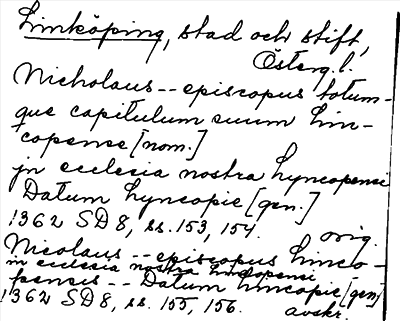 Linköping, stad och stift,
Österg. l.
Nicholaus -- episcopus totum-
que capitulum suum Lin-
copense [nom.]
jn ecclesia nostra Lyncopensi
Datum Lyncopie [gen.]
1362 SD 8, ss. 153, 154. orig.
Nicolaus -- episcopus Linco-
in ecclesia nostra Lincopensi
pensis -- Datum Lincopie [gen]
1362 SD 8, ss. 155, 156. avskr.